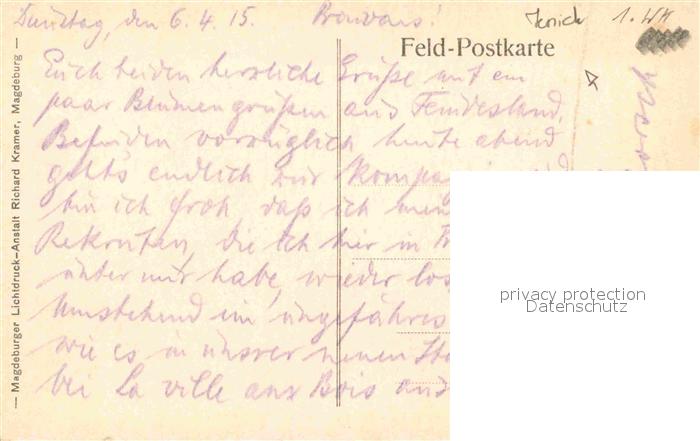 Dienstag, den 6.4.15. Prouvais!
1. WK
Feld-Postkarte
Euch beiden herzliche Grüße mit ein
paar Blumengrüßen aus Feindesland.
Befinden vorzüglich heute abend
geht's endlich zur Kompa
bin ich froh, daß ich mein
Rekruten, die ich hier in
unter mir habe, wieder los
Umstehend ein ungefähres
wie es in unsrer neuen
bei La ville aux Bois
— Magdeburger Lichtdruck-Anstalt Richard Kramer, Magdeburg —
privacy protection
Datenschutz